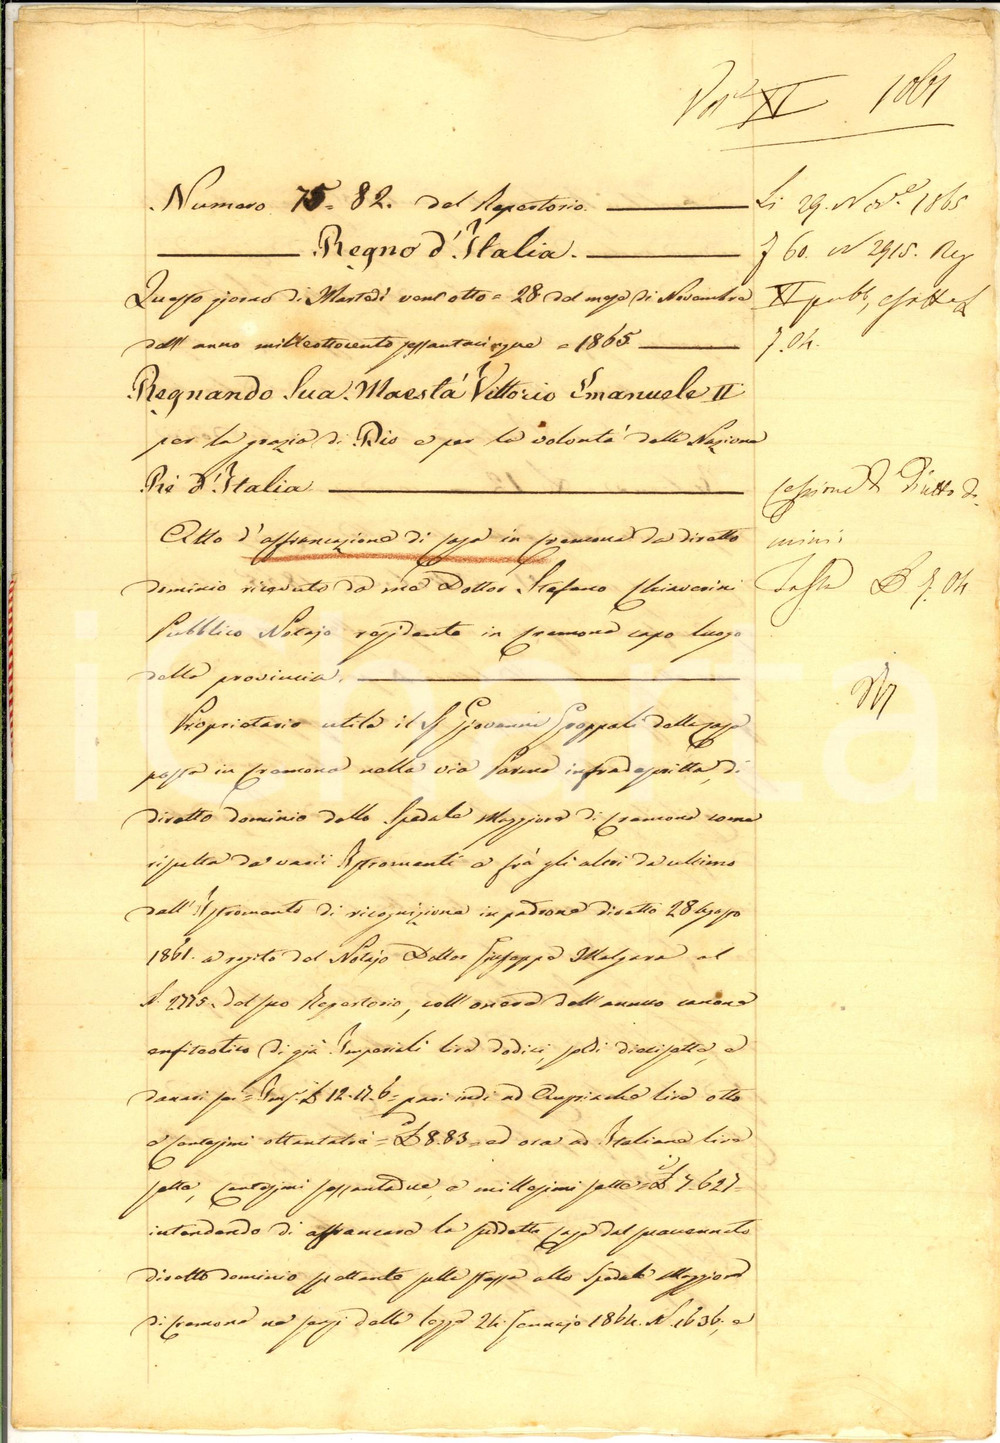 Vol.e XI 1061
Numero 75=82. del Repertorio.
Regno d'Italia.
Questo giorno di Martedì vent'otto = 28 del mese di Novembre
dell'anno milleottocento sessantacinque = 1865
Regnando Sua Maestà Vittorio Emanuele II
per la grazia di Dio e per la volontà della Nazione
Ré d'Italia
Atto d'affrancazione di casa in Cremona da diretto
dominio ricevuto da me Dottor Stefano Chiaverini
Pubblico Notajo residente in Cremona capo luogo
della provincia.
Proprietario utile il S.r Giovanni Groppali della casa
posta in Cremona nella via infradescritta, di
diretto dominio dello Spedale Maggiore di Cremona come
risulta da varii Istromenti e frà gli altri da ultimo
dall'Istromento di ricognizione in padrone diretto 28 Agosto
1861. a rogito del Notajo Dottor Giuseppe al
N. 2775 del suo Repertorio, coll'onere dell'annuo canone
enfiteotico di già Imperiali lire dodici, soldi diecisette, e
danari sei = £ 12.17.6 = pari indi ad Austriache lire otto
e centesimi ottantatrè = £ 8.83 = ed ora ad Italiane lire
sette, centesimi sessantadue, e millesimi sette = £ 7.627 =
intendendo di affrancare la suddetta casa dal
diretto dominio spettante sulla stessa allo Spedale Maggiore
di Cremona ne' sensi della legge 24 Gennajo 1864. N. 1636, e
Li 29. Nov.e 1865
f 60. N 2915. Reg
XI pubb,
7.04.
cessione di Diretto do-
minio
Tassa £ 7.04
ichArtA